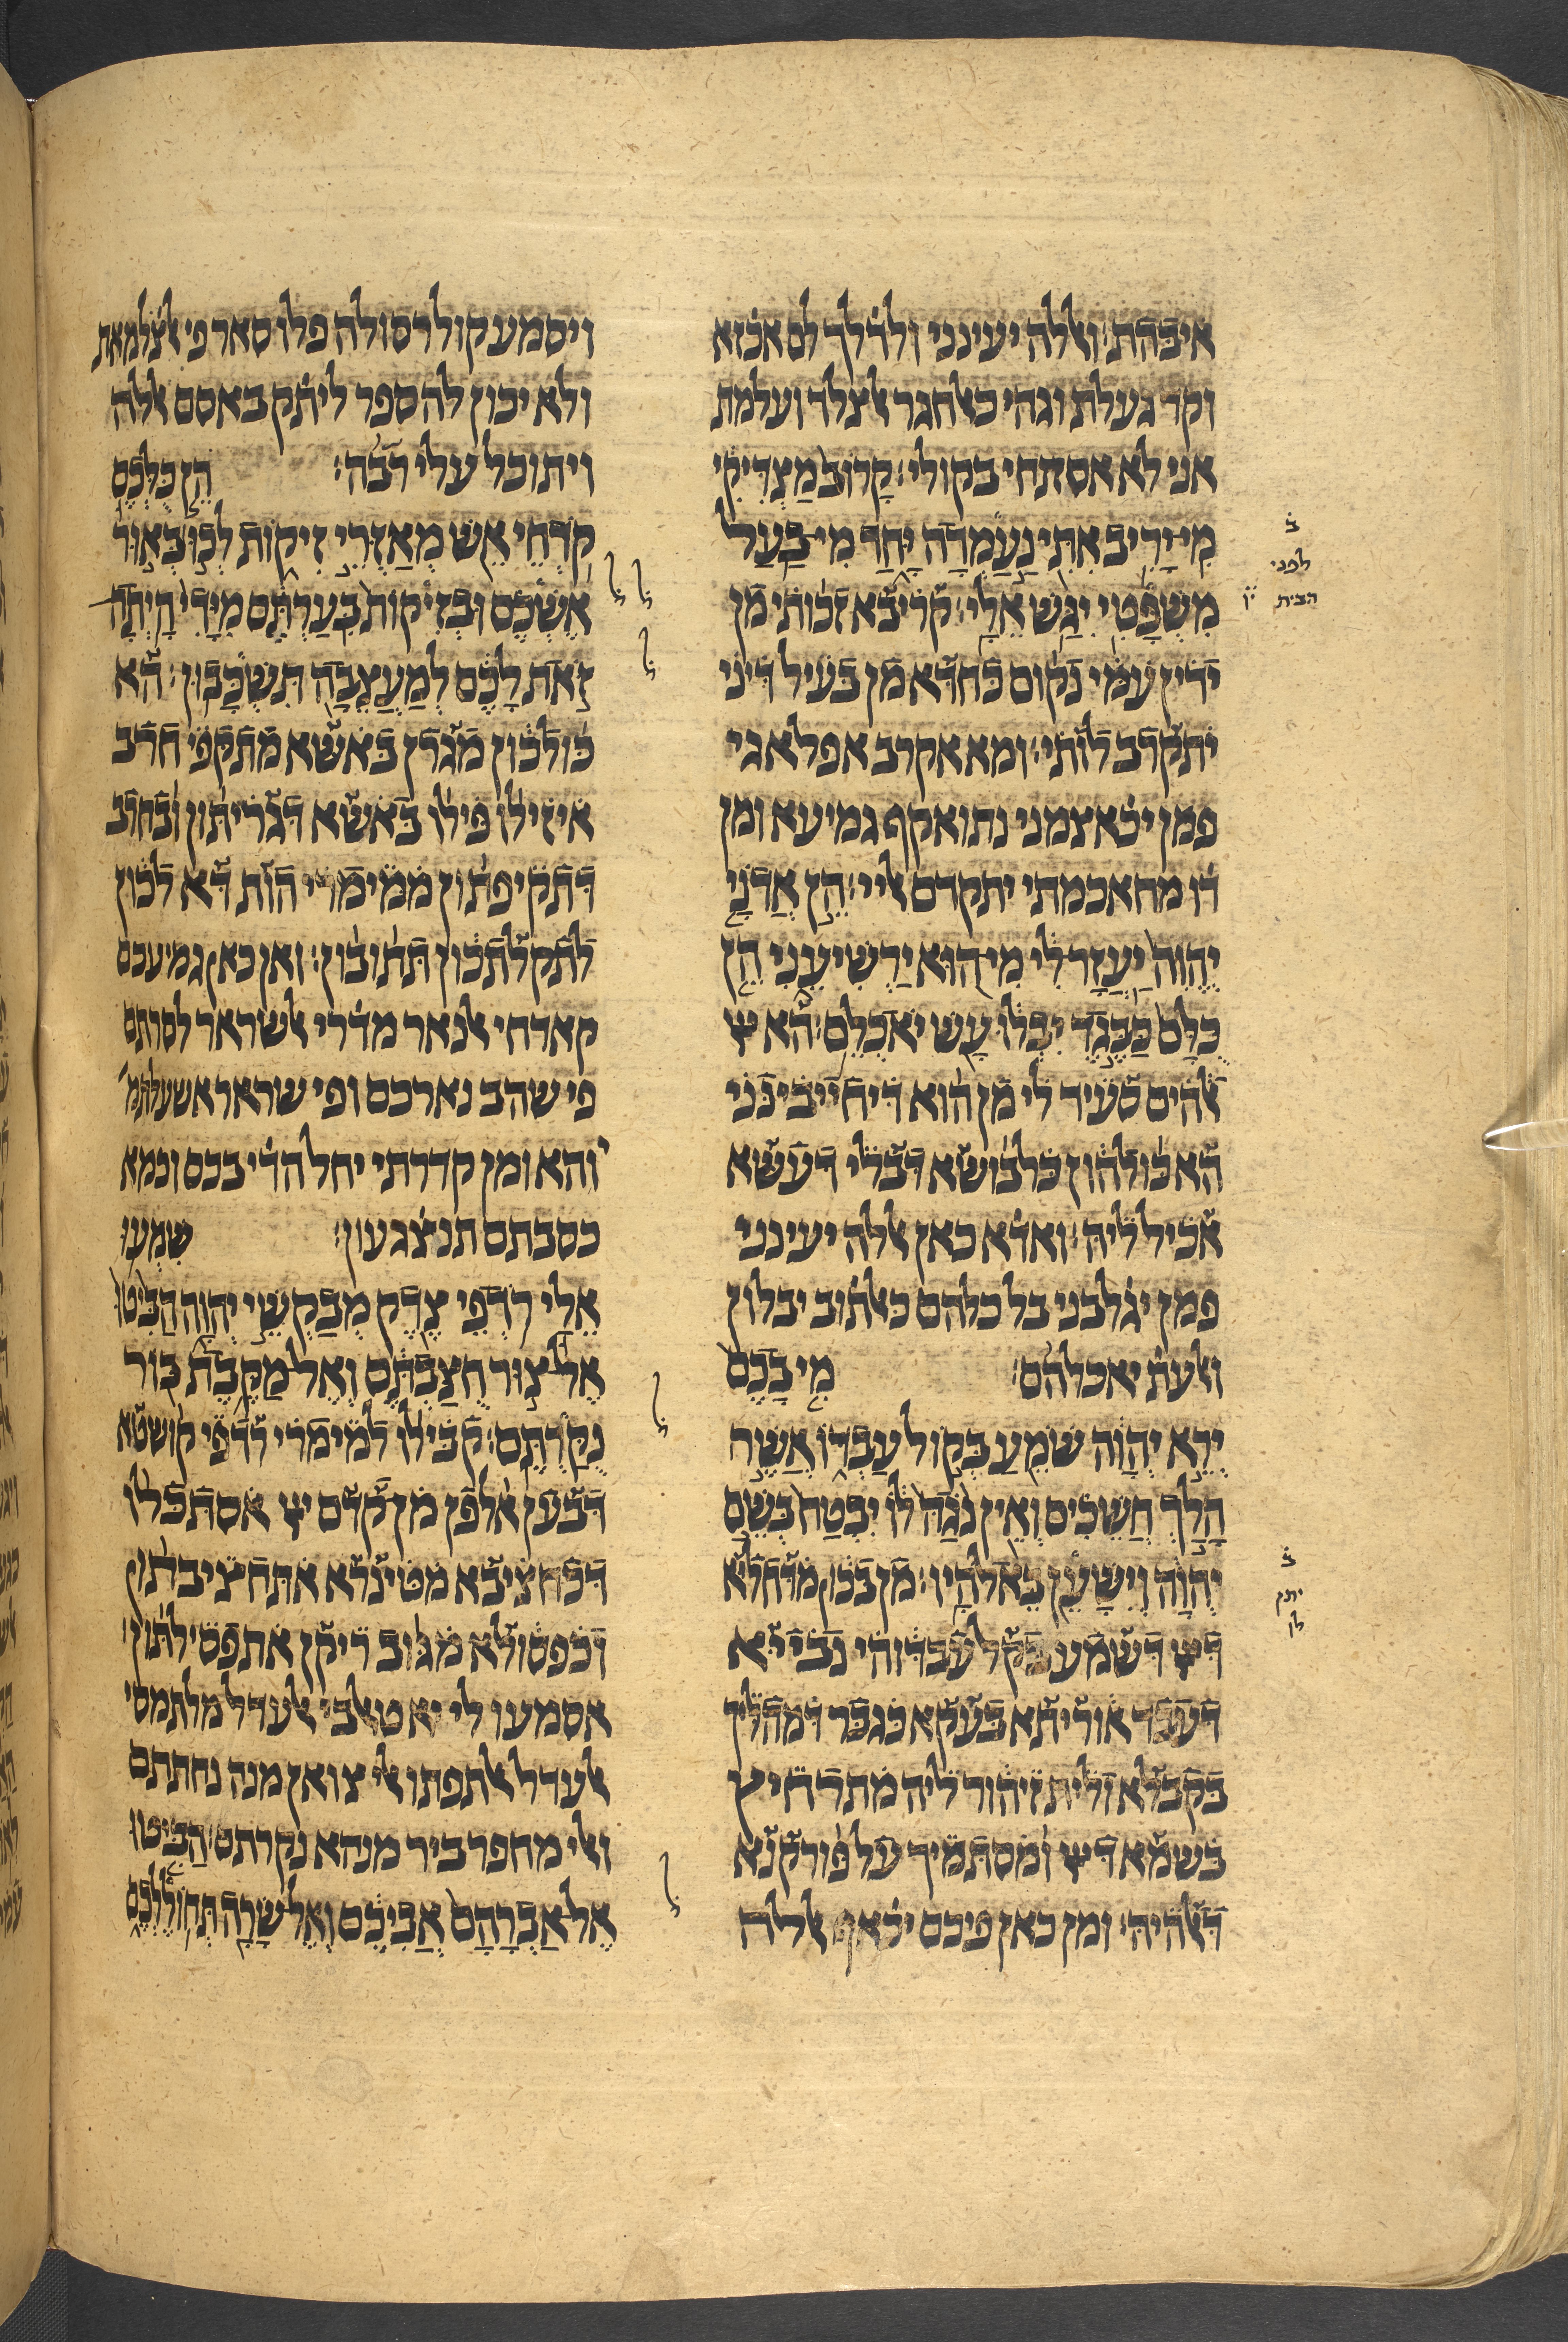 איבהת׃ ואללה יעינני ולדלך לם אכזא
וקד געלת וגהי כאלחגר אלצלד ועלמת
אני לא אסתחי בקולי׃ קָרוֹב מַצְדִּיקִי
מִי יָרִיב אִתִּי נַעַמְדָה יָּחַד מִי בַעַל
מִשְׁפָּטִי יִגַּשׁ אֵלָי׃ קריבא זכותי מן
ידין עמי נקום כחדא מן בעיל דיני
יתקרב לותי׃ ומא אקרב אפלאגי
פמן יכאצמני נתואקף גמיעא ומן
דו מחאכמתי יתקדם אליי׃ הֵן אֲדֹנָי
יֱהֹוִה יַעֲזָר לִי מִי הוּא יַרְשִׁיעֵנִי הֵן
כֻּלָּם כַּבֶּגֶד יִבְלוּ עָשׁ יֹאכְלֵם׃ הא יי
אלהים סעיד לי מן הוא דיחייבינני
הא כולהון כלבושא דבלי דעשא
אכיל ליה׃ ואדא כאן אללה יעינני
פמן יגלבני בל כלהם כאלתוב יבלון
ואלעת יאכלהם׃ מִי בָכֶם
יְרֵא יְהוָה שֹׁמֵעַ בְּקוֹל עַבְדּוֹ אֲשֶׁר
הָלַךְ חֲשֵׁכִים וְאֵין נֹגַהּ לוֹ יִבְטַח בְּשֵׁם
יְהוָה וְיִשָּׁעֵן בֵּאלֹהָיו׃ מן בכון מדחליא
דיי דשמע בקל עבדוהי נבייא
דעבד אוריתא בעקא כגבר דמהליך
בקבלא ולית זיהור ליה מתרחיץ
בשמא דיי ומסתמיך על פורקנא
דאלהיה׃ ומן כאן פיכם יכאף אללה
ב
לפני
הבית
ב
יתק
לן
ויסמע קול רסולה פלו סאר פי אלצלמאת
ולא יכון לה ספר ליתק באסם אללה
ויתוכל עלי רבה׃ הֵן כֻּלְּכֶם
קֹדְחֵי אֵשׁ מְאַזְּרֵי זִיקוֹת לְכוּ בְּאוּר
אֶשְׁכֶם וּבְזִיקוֹת בִּעַרְתֶּם מִיָּדִי הָיְתָה
זֹּאת לָכֶם לְמַעֲצֵבָה תִּשְׁכָּבוּן׃ הא
כולכון מגרן באשא מתקפי חרב
איזילו פילו באשא דגריתון ובחרב
דתקיפתון ממימרי הות דא לכון
לתקלתכון תתובון׃ ואן כאן גמיעכם
קאדחי אלנאר מדרי אלשראר לסרתם
פי שהב נארכם ופי שוראר אשעלתמ
והא ומן קדרתי יחל הדי בכם וכמא
כסבתם תנצגעון׃ שִׁמְעוּ
אֵלַי רֹדְפֵי צֶדֶק מְבַקְשֵׁי יְהוָה הַבִּיטוּ
אֶל צוּר חֻצַּבְתֶּם וְאֶל מַקֶּבֶת בּוֹר
נֻקַּרְתֶּם׃ קבילו למימרי רדפי קושטא
דבען אלפן מן קדם יי אסתכלו
דכחציבא מטינרא אתחציבתון
וכפסולא מגוב ריקן אתפסילתון׃
אסמעו לי יא טאלבי אלעדל מלתמסי
אלעדל אלתפתו אלי צואן מנה נחתתם
ואלי מחפר ביר מנהא נקרתם׃ הַבִּיטוּ
אֶל אַבְרָהָם אֲבִיכֶם וְאֶל שָׂרָה תְּחוֹלֶלְכֶם